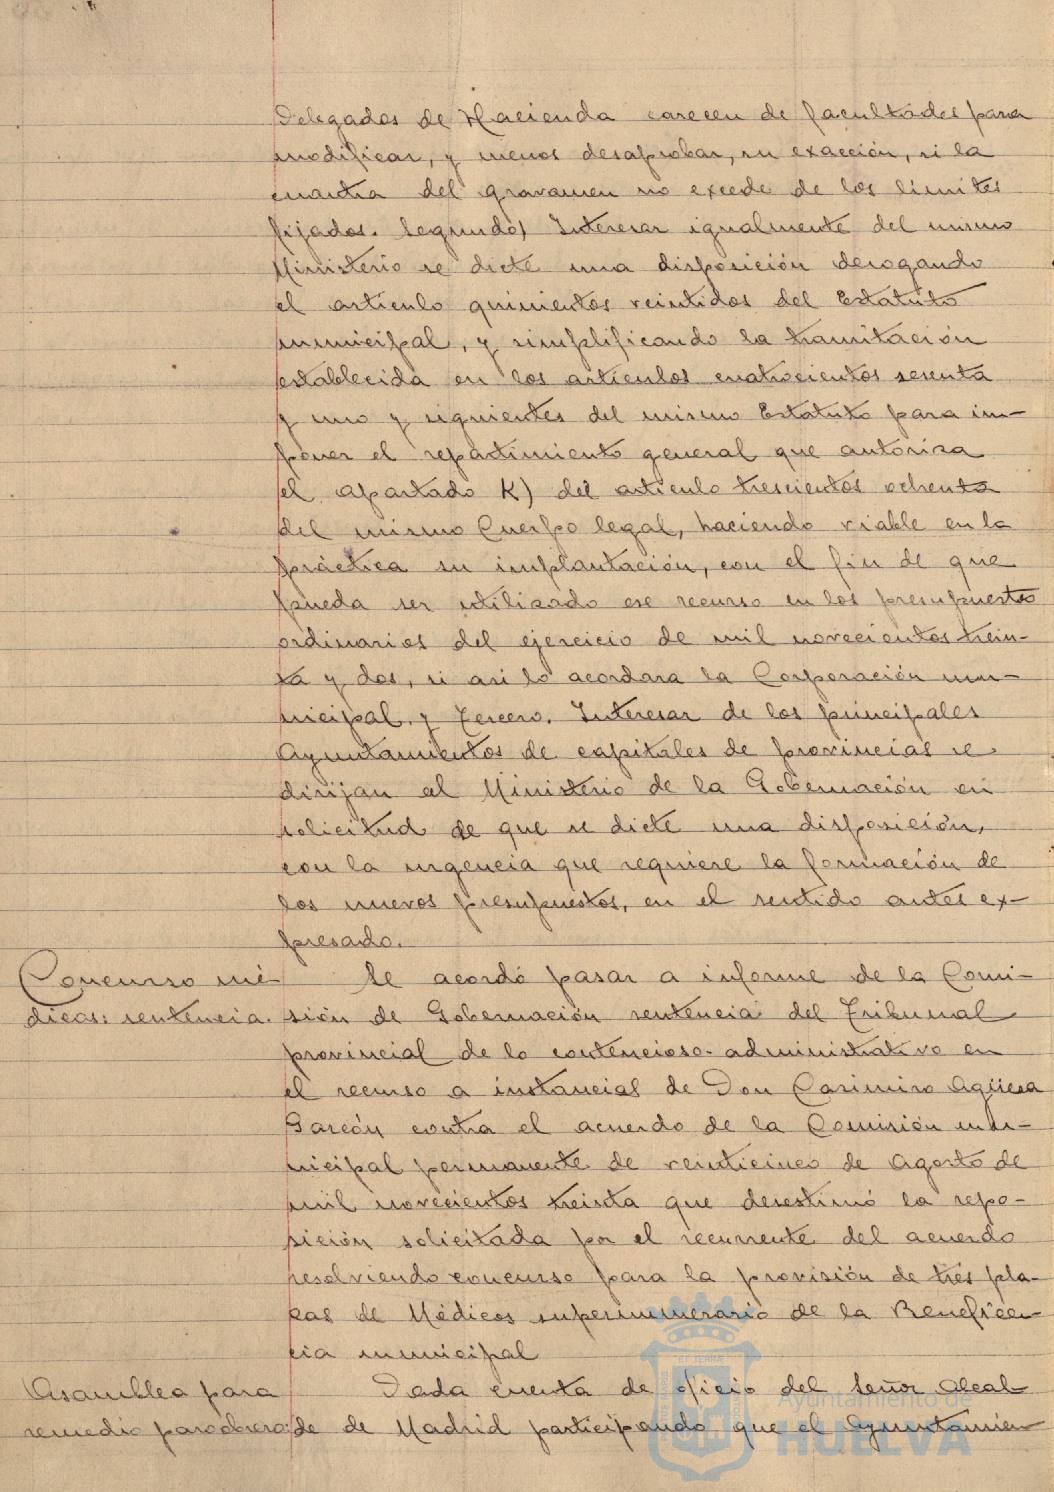 Delegados de Hacienda carecen de facultades para
modificar, y menos desaprobar, su exacción, si la
cuantia del gravamen no excede de los limites
fijados. Segundo) Interesar igualmente del mismo
Ministerio se dicte una disposición derogando
el articulo quinientos veintidos del Estatuto
municipal, y simplificando la tramitación
establecida en los articulos cuatrocientos sesenta
y uno y siguientes del mismo Estatuto para im-
poner el repartimiento general que autoriza
el apartado K) del articulo trescientos ochenta
del mismo Cuerpo legal, haciendo viable en la
práctica su implantación, con el fin de que
pueda ser utilizado ese recurso en los presupuestos
ordinarios del ejercicio de mil novecientos trein-
ta y dos, si asi lo acordara la Corporación mu-
nicipal. y Tercero. Interesar de los principales
Ayuntamientos de capitales de provincias se
dirijan al Ministerio de la Gobernación en
solicitud de que se dicte una disposición,
con la urgencia que requiere la formación de
los nuevos presupuestos, en el sentido antes ex-
presado.
Concurso mé-
dicos: sentencia.
Se acordó pasar a informe de la Comi-
sión de Gobernación sentencia del Tribunal
provincial de lo contencioso-administrativo en
el recurso a instancias de Don Casimiro Agüera
Garcón contra el acuerdo de la Comisión mu-
nicipal permanente de veinticinco de Agosto de
mil novecientos treinta que desestimó la repo-
sición solicitada por el recurrente del acuerdo
resolviendo concurso para la provisión de tres pla-
zas de Médicos supernumerario de la Beneficen-
cia municipal
Asamblea para
remedio paro obrero
Dada cuenta de oficio del Señor Alcal-
de de Madrid participando que el Ayuntamien-
Ayuntamiento de
HUELVA